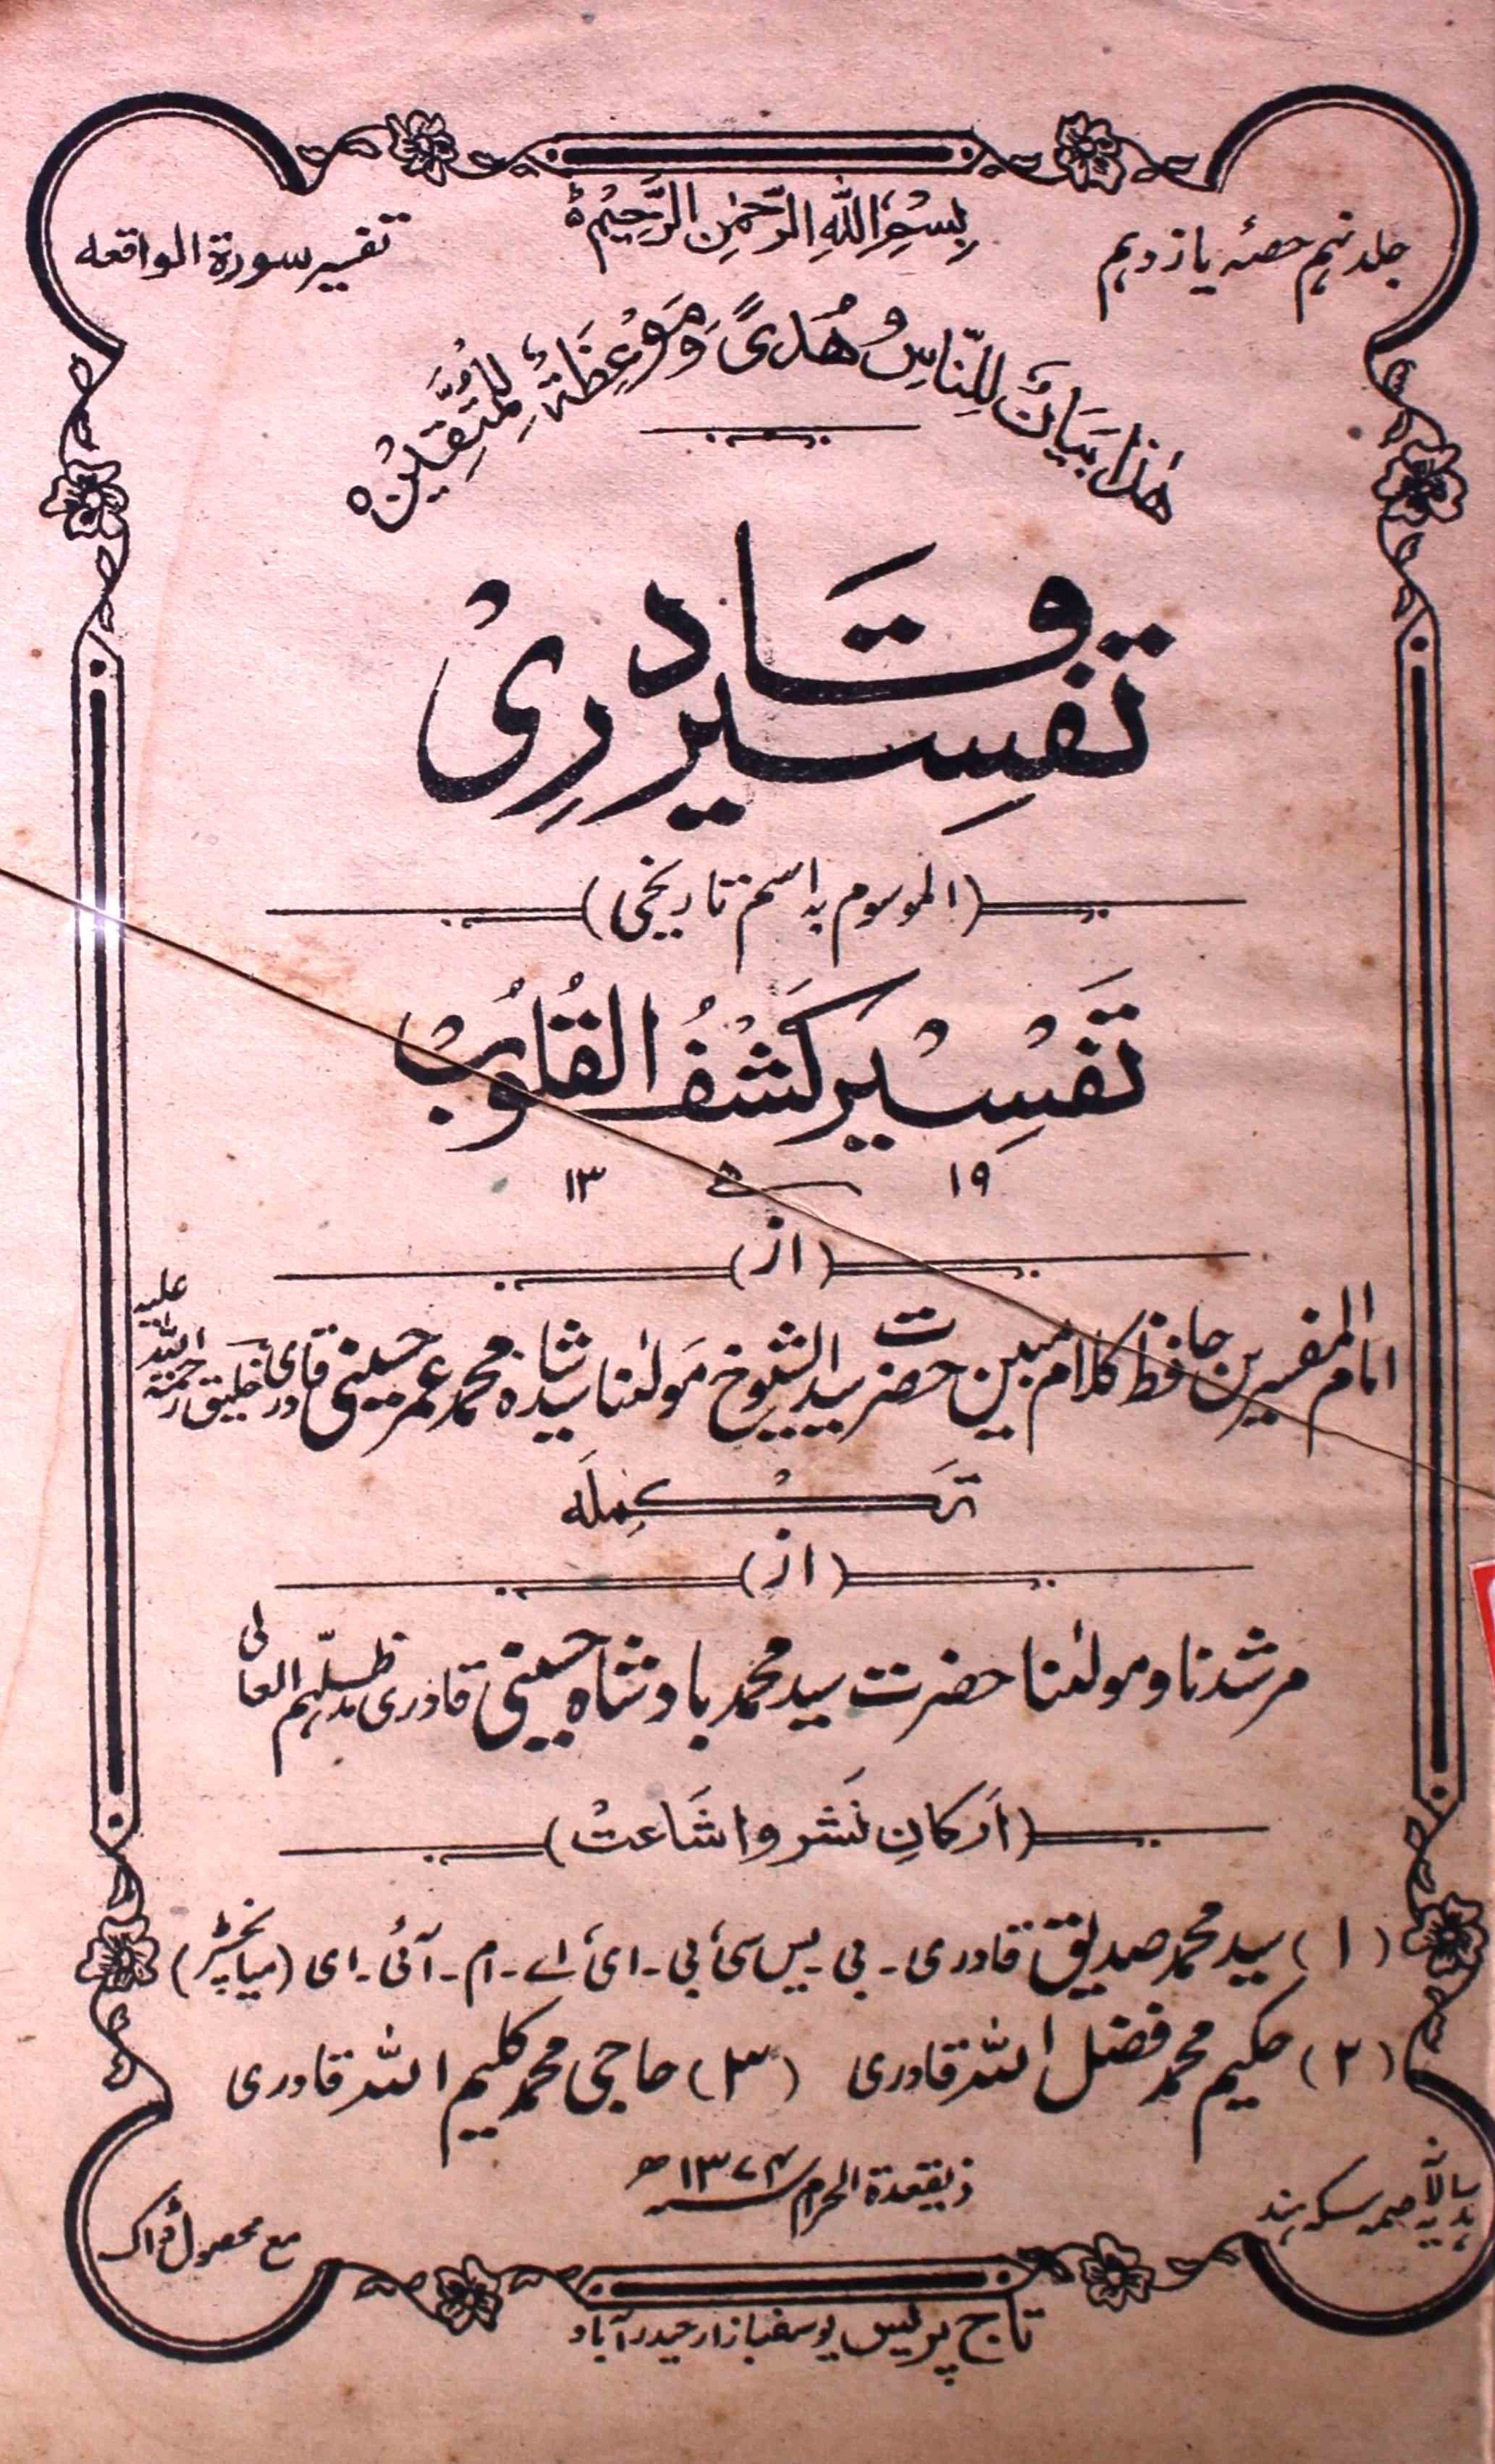 جلد نہم حصۂ یازدہم
بِسْمِ اللّٰہِ الرَّحْمٰنِ الرَّحِیْمِ ؕ
تفسیر سورۃ الواقعہ
ھٰذَا بَیَانٌ لِّلنَّاسِ وَ ھُدًی وَّ مَوْعِظَۃٌ لِّلْمُتَّقِیْنَ ہ
تفسیر قادری
(الموسوم بہ اسم تاریخی)
تَفْسِیْر کَشْفُ الْقُلُوْبْ
۱۹ ھ ۱۳
(از)
امام المفسرین حافظ کلام مبین حضرت سید الشیوخ مولٰنا سید شاہ محمد عمر حسینی قادری خلیق رحمۃ اللہ علیہ
تَکْمِلَہ
(از)
مرشدنا و مولٰنا حضرت سید محمد بادشاہ حسینی قادری مدظلہم العالی
(اَرکانِ نَشر و اشَاعتْ)
(۱) سید محمد صدیق قادری۔ بی۔ یس سی، بی۔ ای، اے۔ ام۔ آئی۔ ای (میانچسٹر)
(۲) حکیم محمد فضل اللہ قادری (۳) حاجی محمد کلیم اللہ قادری
ذیقعدۃ الحرام ۱۳۷۴ھ
سکہ ہند
مع محصول ڈاک
تاج پریس یوسف بازار حیدرآباد